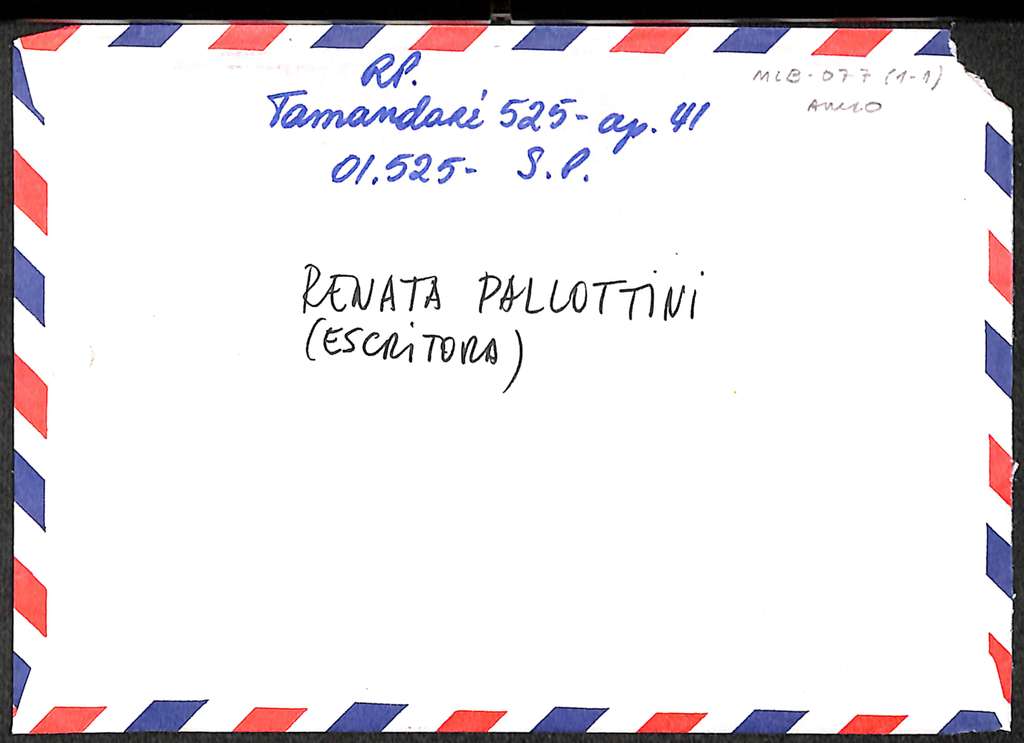 RP.
Tamandaré 525- ap. 41
01.525- S.P.
MLB-077 (1-1)
RENATA PALLOTTINI
(ESCRITORA)